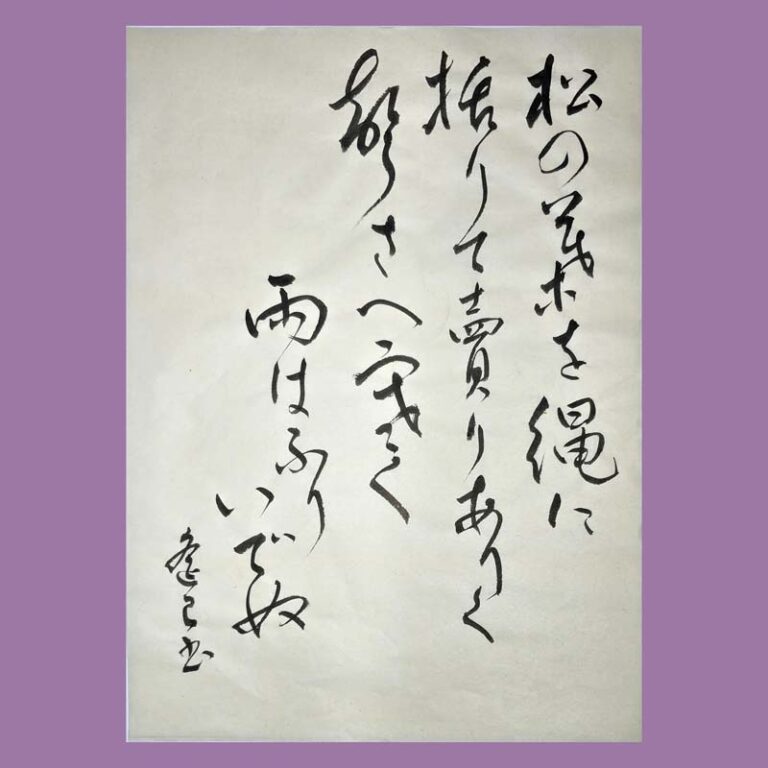 松の葉を縄に
括りて賣りありく
聲さへ寒く
雨はふり
いでぬ
書